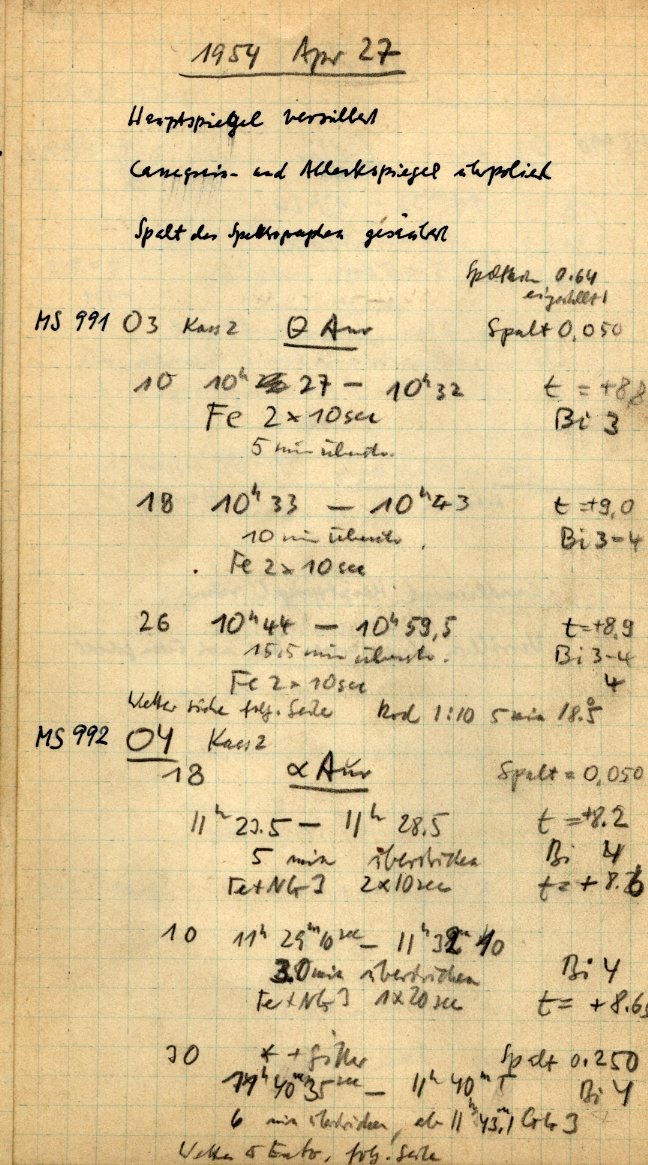 1954 Apr 27
Hauptspiegel versilbert
Cassegrain- und Ablenkspiegel überpoliert
Spalt des Spektrographen gesäubert
0.64
eingestellt!
MS 991 03 Kass 2 θ Aur Spalt 0,050
10 10h 27 – 10h 32 t = +8,8
Fe 2 x 10 sec Bi 3
5 min überstr.
18 10h 33 – 10h 43 t = +9,0
10 min überstr. Bi 3-4
Fe 2 x 10 sec
26 10h 44 – 10h 59,5 t = +8.9
15.5 min überstr. Bi 3-4
Fe 2 x 10 sec 4
Wetter siehe folg. Seite Rod 1:10 5 min 18.5°
MS 992 04 Kass 2
18 α Aur Spalt = 0,050
11h 23.5 – 11h 28.5 t = +8.2
5 min überstrichen Bi 4
2x10 sec t = + 8.6
10 11h 29m 10sec – 11h 32m 10
3.0 min überstrichen Bi 4
1x20 sec t = + 8.6
30 * + Gitter Spalt 0.250
11h 40m 35sec – 11h 40m Bi 4
6 min überstrichen, ab 11h 43.1m 3
Wetter folg. Seite